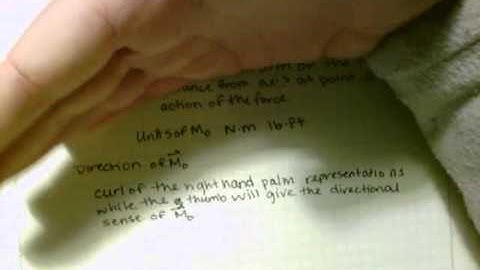 by the
from axis at point
action of the force
Units of M₀ N·m lb·ft
Direction of M⃗₀
curl of the right hand palm representations
while the thumb will give the directional
sense of M⃗₀